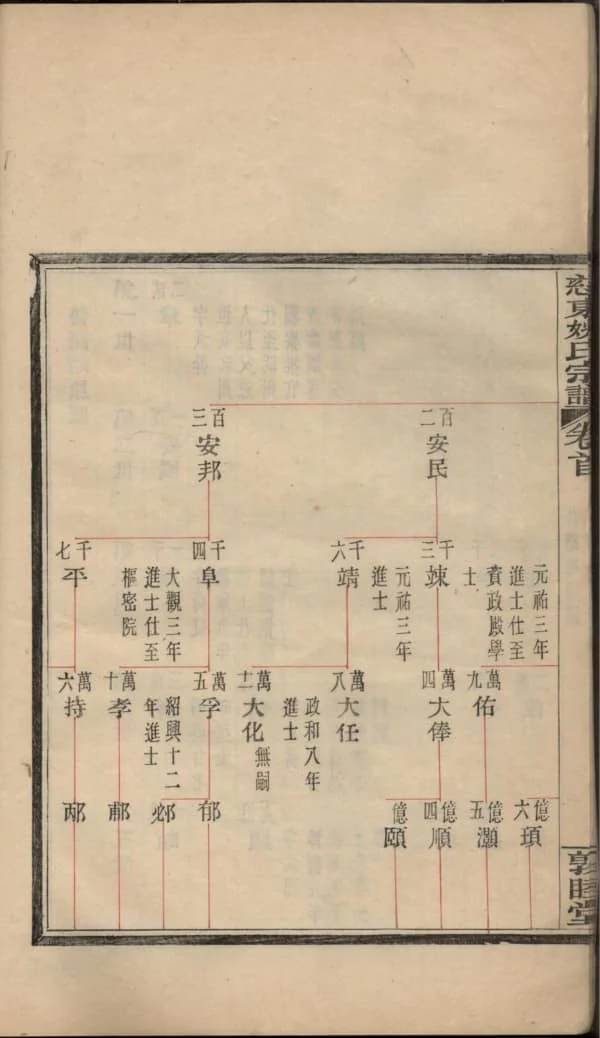 慈東姚氏宗譜
卷首
敦睦堂
百二
安民
百三
安邦
元祐三年
進士仕至
資政殿學
士
千三
竦
元祐三年
進士
千六
靖
千四
阜
大觀三年
進士仕至
樞密院
千七
平
萬九
佑
萬四
大俸
萬八
大任
政和八年
進士
萬十二
大化
無嗣
萬五
孚
紹興十二
年進士
萬十
孝
萬六
持
億六
頊
億五
灝
億四
順
億
頤
郁
邲
郙
邴